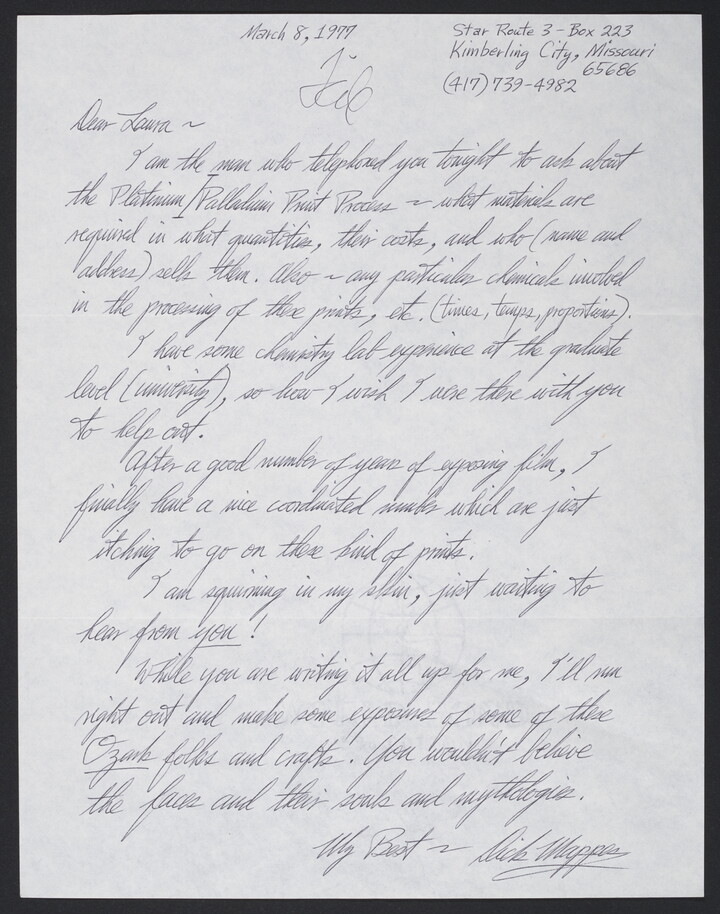 March 8, 1977
Star Route 3 - Box 223
Kimberling City, Missouri
65686
(417) 739-4982
Dear Laura ~
I am the man who telephoned you tonight to ask about
the Platinum/Palladium Print Process ~ what materials are
required in what quantities, their costs, and who (name and
address) sells them. Also ~ any particular chemicals involved
in the processing of these prints, etc. (times, temps, proportions).
I have some chemistry lab experience at the graduate
level (university), so how I wish I were there with you
to help out.
After a good number of years of exposing film, I
finally have a nice coordinated number which are just
itching to go on these kind of prints.
I am squirming in my skin, just waiting to
hear from you!
While you are writing it all up for me, I'll run
right out and make some exposures of some of these
Ozark folks and crafts. You wouldn't believe
the faces and their souls and mythologies.
My Best ~ Dick